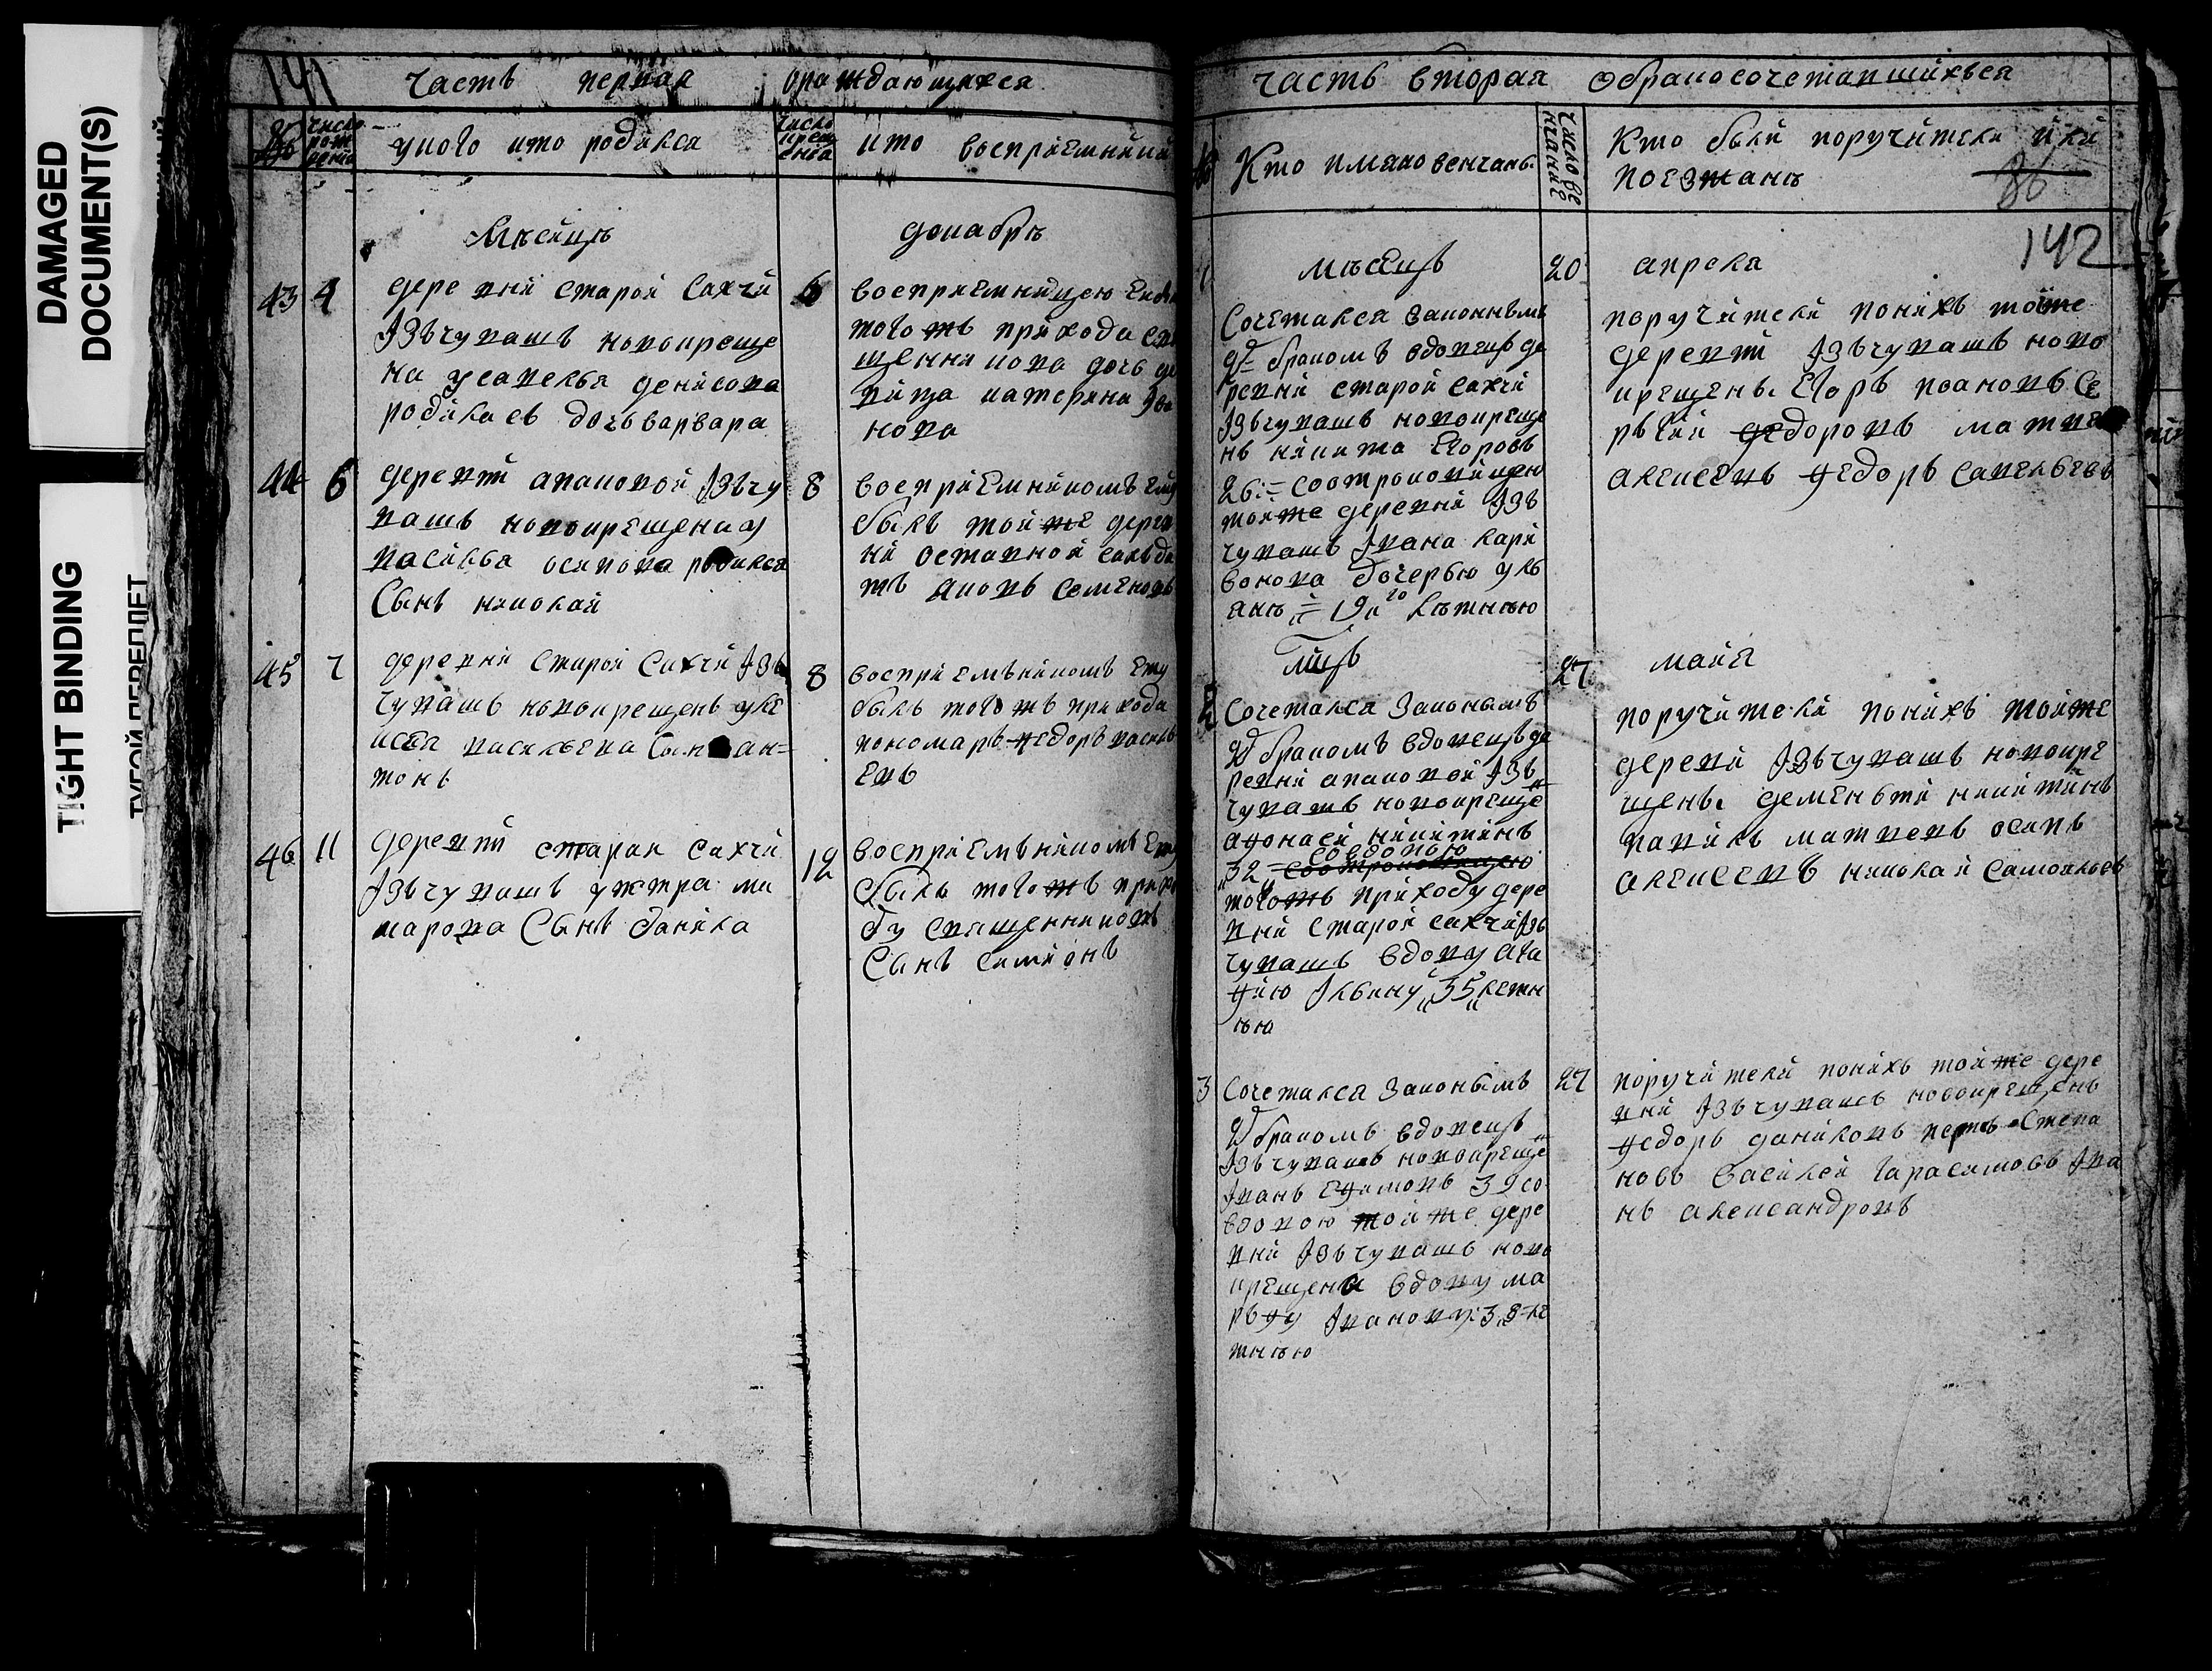 DAMAGED
DOCUMENT(S)
TIGHT BINDING
ТУГОЙ ПЕРЕПЛЕТ
141
часть первая ораждающихся
число рождения
у кого кто родился
число крещения
кто восприемники
Мѣсяцъ декабрь
43 4
деревни старой Сахчи
Ізъчувашъ новокреще
на усавелья денисова
родилась дочь варвара
6
восприемницею
того жъ прихода свя
щенника попа дочь де
вица катерина Ива
нова
44 6
деревни апаковой Ізъчу
вашъ новокрещена у
василья осипова родился
Сынъ николай
8
восприемникомъ ему
былъ той же дерев
ни оставной салда
тъ яковъ семеновъ
45 7
деревни старой Сахчи Ізъ
чувашъ новокрещенъ уале
ксея васильева Сынъ ан=
тонъ
8
восприемъникомъ ему
былъ того жъ прихода
пономарь федоръ василь
евъ
46 11
деревни старай сахчи
Ізъчувашъ удмитра ма
карова Сынъ данила
12
восприемъникомъ ему
былъ того жъ прихо
ду священниковъ
Сынъ симионъ
часть вторая обракосочетавшихься
Кто имяно венчаны
число венчания
Кто были поручители или
поезжанѣ
86
142
1
мѣсецъ 20 апреля
Сочетался законнымъ
бракомъ вдовецъ де
ревни старой сахчи
Ізъчувашъ новокреще
нъ никита Егоровъ
26 = соотроковицею
тойже деревни Ізъ
чувашъ Івана лари
вонова дочерью уль
анѣ = 19и лѣтнѣю
поручители понихъ тойже
деревни Ізъчувашъ ново
крещены Егоръ ивановъ Се
ргѣй федоровъ матвей
алексеевъ федоръ савельевъ
мцъ 27 майя
2
Сочетался законымъ
бракомъ вдовецъ де
ревни апаковой Ізъ
чувашъ новокреще
афонасей никитинъ
совдовою
32 = соотроковицею
тогожъ приходу дере
вни старой сахчи Ізъ
чувашъ вдову ага
фию Ілвину 35 летн
ѣю
поручители понихъ тойже
деревни Ізъчувашъ новокре
щены дементей никитинъ
гаврилъ матвеевъ осипъ
алексеевъ николай самойловъ
3
Сочетался законымъ 27
бракомъ вдовецъ
Ізъчувашъ новокреще
Іванъ Ефимовъ 39 со
вдовою той же дере
вни Ізъчувашъ ново
крещена вдову ма
рьфу Іванову 38 ле
тнѣю
поручители понихъ той же дере
вни Ізъчувашъ новокрещены
федоръ даниловъ петръ Степа
новъ василей гарасимовъ Іва
нъ александровъ